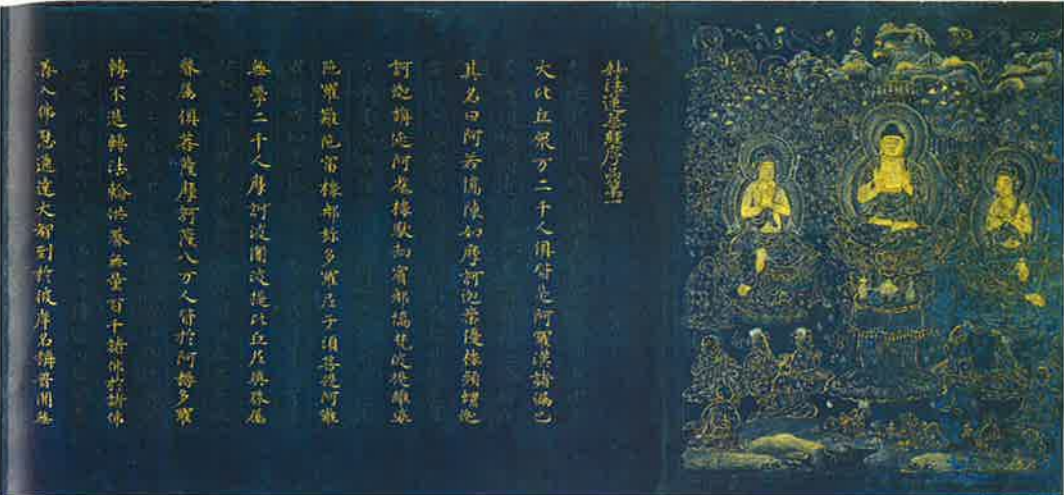 妙法蓮華經序品第一
大比丘眾万二千人俱皆是阿羅漢諸漏已
其名曰阿若憍陳如摩訶迦葉優樓頻螺迦
訶迦旃延阿㝹樓馱劫賓那憍梵波提離婆
陁羅難陁富樓那彌多羅尼子須菩提阿難
無學二千人摩訶波闍波提比丘尼與眷屬
眷屬俱菩薩摩訶薩八万人皆於阿耨多羅
轉不退轉法輪供養無量百千諸佛於諸佛
善入佛慧通達大智到於彼岸名稱普聞無